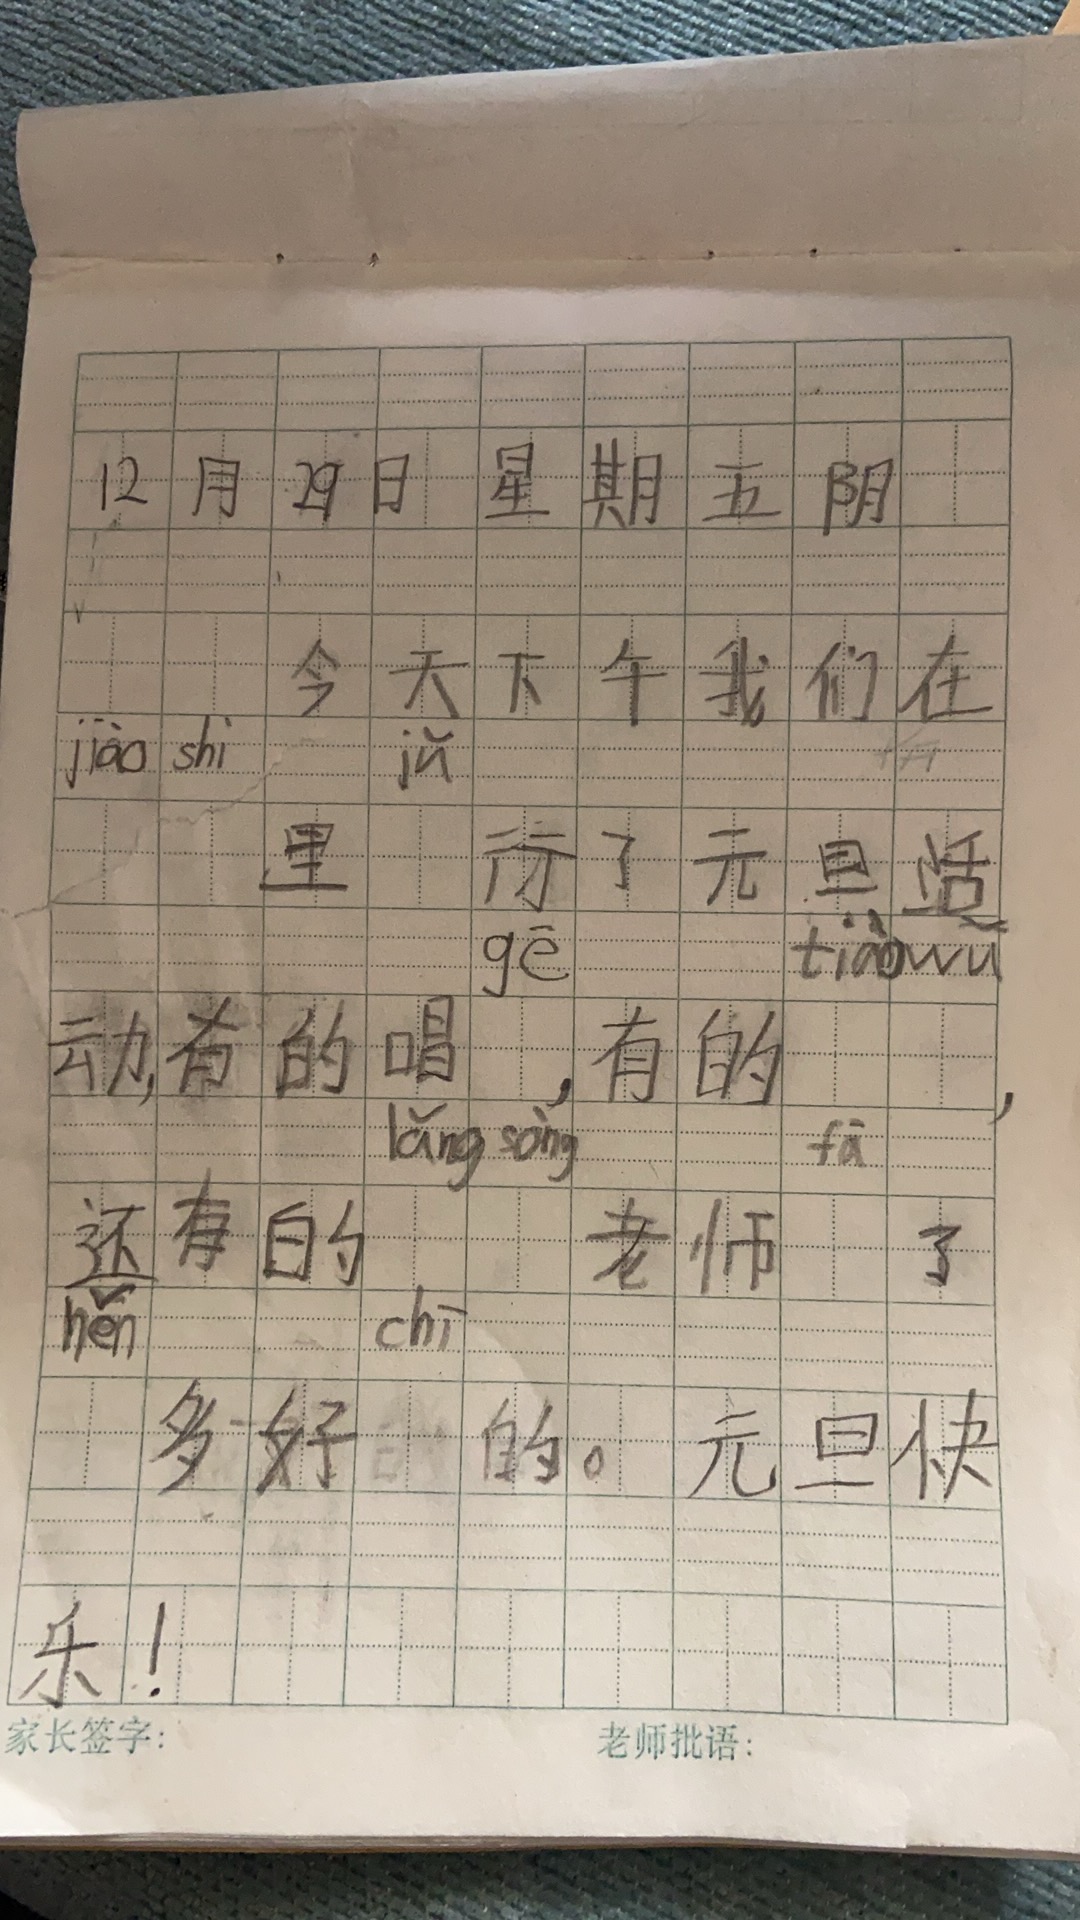 12月29日 星期五 阴
今天下午我们在
jiào shì jǔ
里 行了元旦活
gē tiào wǔ
动,有的唱 ,有的 ,
lǎng sòng fā
还有的 老师 了
hěn chī
多好 的。元旦快
乐!
家长签字: 老师批语: